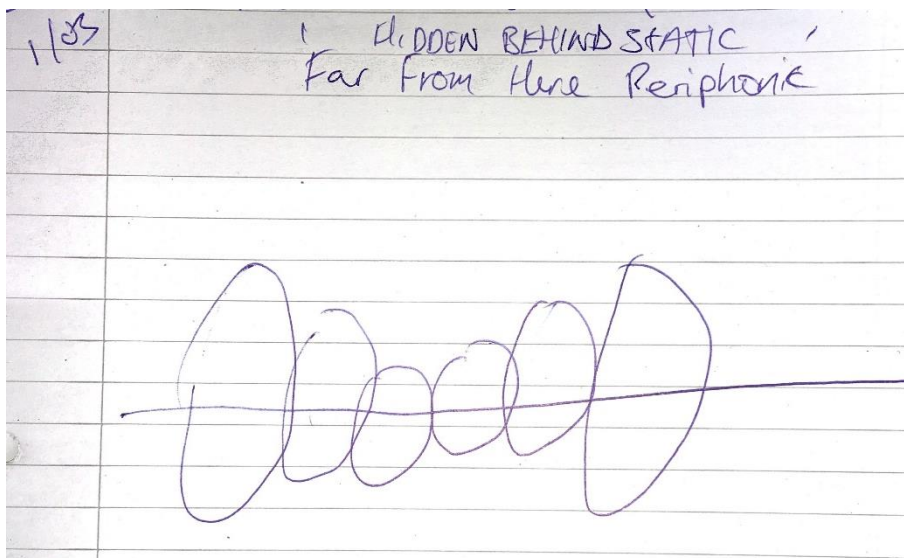 1/03
' HIDDEN BEHIND STATIC '
Far From Here Periphonic